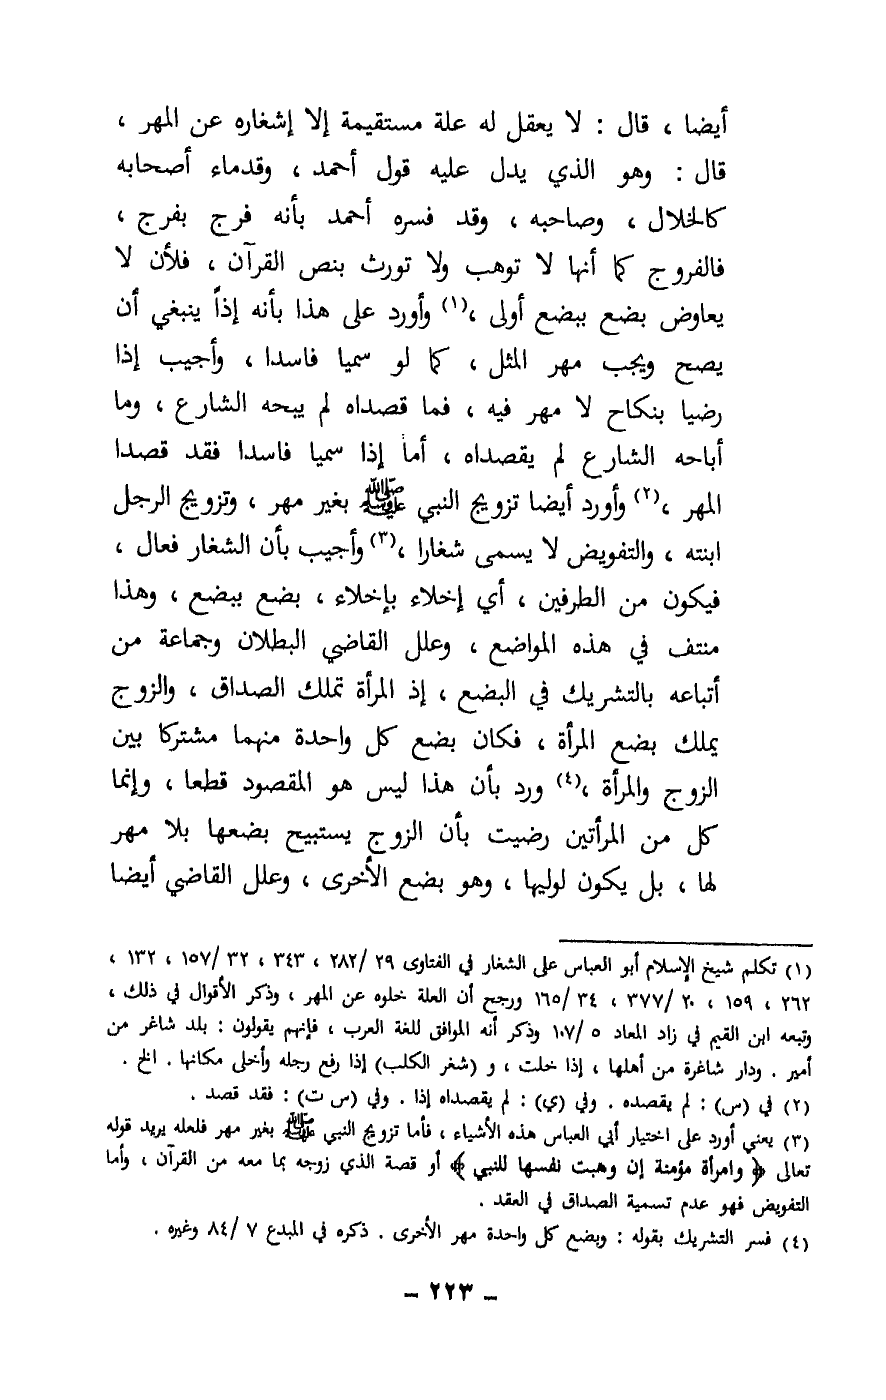 أيضا ، قال : لا يعقل له علة مستقيمة إلا إشغاره عن المهر ،
قال : وهو الذي يدل عليه قول أحمد ، وقدماء أصحابه
كالخلال ، وصاحبه ، وقد فسره أحمد بأنه فرج بفرج ،
فالفروج كما أنها لا توهب ولا تورث بنص القرآن ، فلأن لا
يعاوض بضع ببضع أولى ،(١) وأورد على هذا بأنه إذاً ينبغي أن
يصح ويجب مهر المثل ، كما لو سميا فاسدا ، وأجيب إذا
رضيا بنكاح لا مهر فيه ، فما قصداه لم يبحه الشارع ، وما
أباحه الشارع لم يقصداه ، أما إذا سميا فاسدا فقد قصدا
المهر ،(٢) وأورد أيضا تزويج النبي ﷺ بغير مهر ، وتزويج الرجل
ابنته ، والتفويض لا يسمى شغارا ،(٣) وأجيب بأن الشغار فعال ،
فيكون من الطرفين ، أي إخلاء بإخلاء ، بضع ببضع ، وهذا
منتف في هذه المواضع ، وعلل القاضي البطلان وجماعة من
أتباعه بالتشريك في البضع ، إذ المرأة تملك الصداق ، والزوج
يملك بضع المرأة ، فكان بضع كل واحدة منهما مشتركا بين
الزوج والمرأة ،(٤) ورد بأن هذا ليس هو المقصود قطعا ، وإنما
كل من المرأتين رضيت بأن الزوج يستبيح بضعها بلا مهر
لها ، بل يكون لوليها ، وهو بضع الأخرى ، وعلل القاضي أيضا
(١) تكلم شيخ الإسلام أبو العباس على الشغار في الفتاوى ٢٩ /٢٨٢ ، ٣٤٣ ، ٣٢ /١٥٧ ، ١٣٢ ،
٢٦٢ ، ١٥٩ ، ٢٠ /٣٧٧ ، ٣٤ /١٦٥ ورجح أن العلة خلوه عن المهر ، وذكر الأقوال في ذلك ،
وتبعه ابن القيم في زاد المعاد ٥ /١٠٧ وذكر أنه الموافق للغة العرب ، فإنهم يقولون : بلد شاغر من
أمير . ودار شاغرة من أهلها ، إذا خلت ، و (شغر الكلب) إذا رفع رجله وأخلى مكانها . الخ .
(٢) في (س) : لم يقصده . وفي (ي) : لم يقصداه إذا . وفي (س ت) : فقد قصد .
(٣) يعني أورد على اختيار أبي العباس هذه الأشياء ، فأما تزويج النبي ﷺ بغير مهر فلعله يريد قوله
تعالى ﴿ وامرأة مؤمنة إن وهبت نفسها للنبي ﴾ أو قصة الذي زوجه بما معه من القرآن ، وأما
التفويض فهو عدم تسمية الصداق في العقد .
(٤) فسر التشريك بقوله : وبضع كل واحدة مهر الأخرى . ذكره في المبدع ٧ /٨٤ وغيره .
- ٢٢٣ -